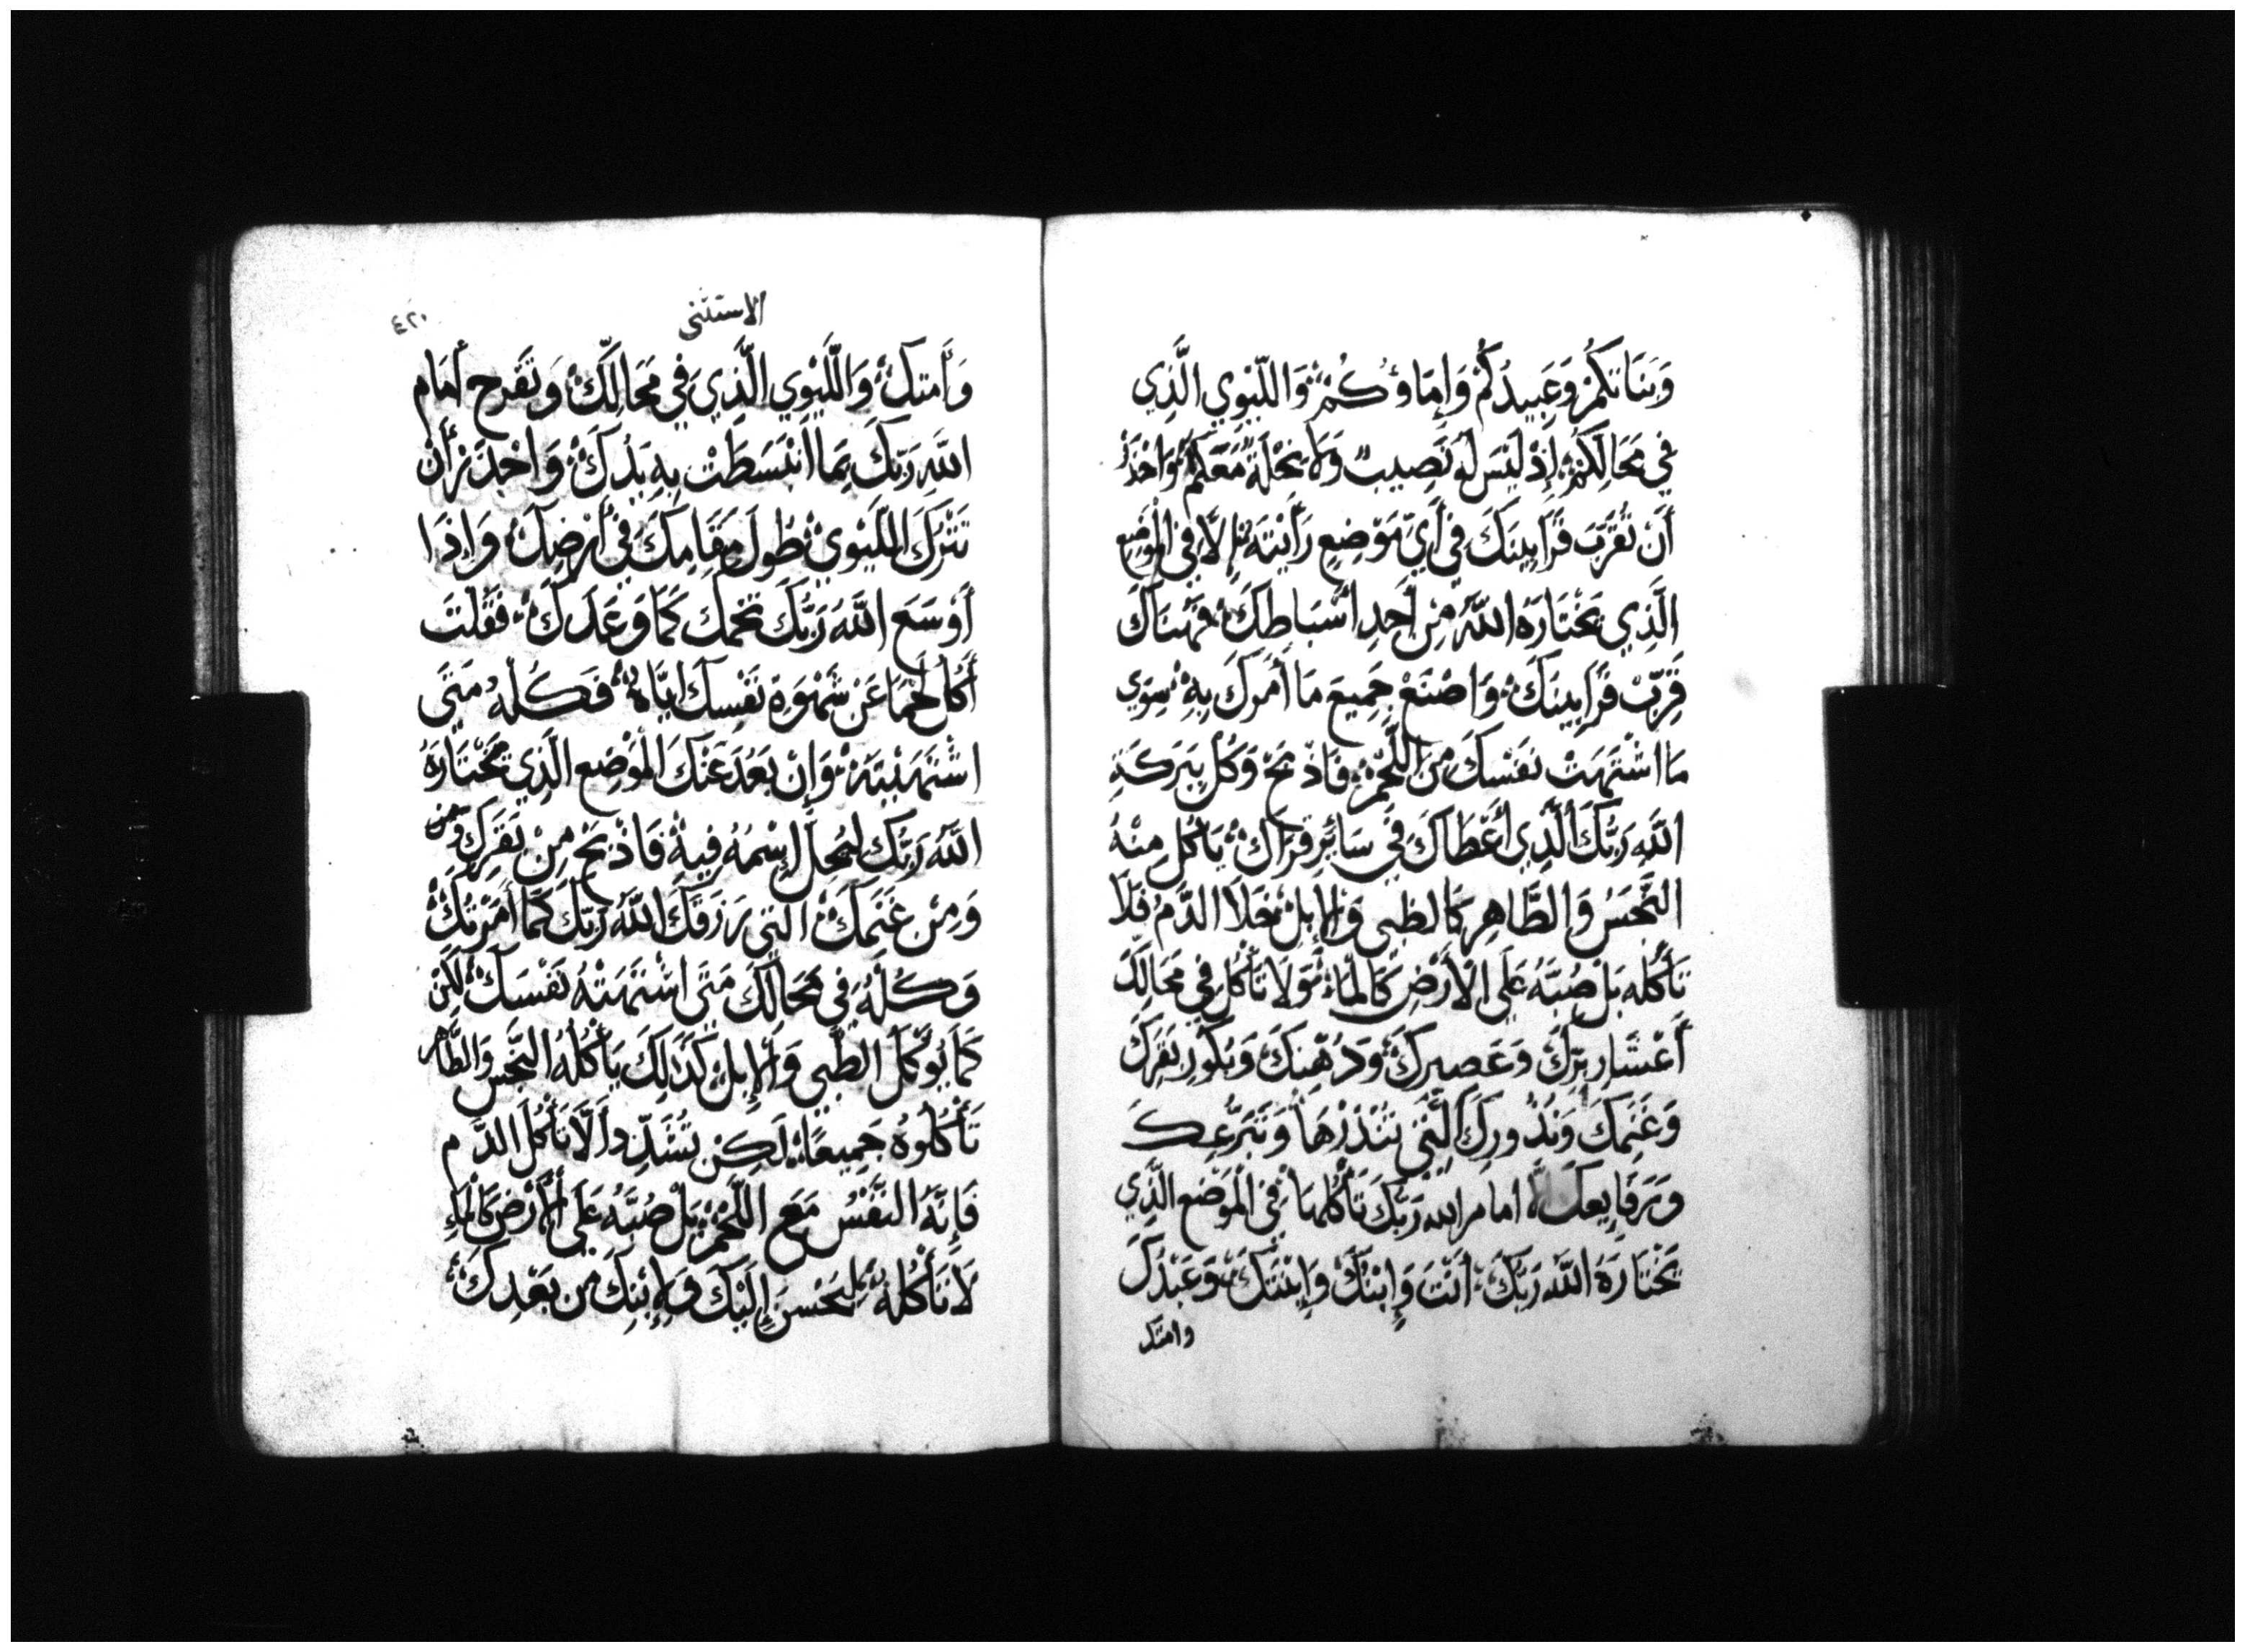 وَبَنَاتكُمْ وَعَبِيدُكُمْ وَإِمَاؤُكُمْ وَاللّيْوِي الَّذِي
فِي مَحَالِكُمْ إِذْ لَيْسَ لَهُ نَصِيبٌ وَلَا نِحْلَةٌ مَعَكُمْ وَاحْذَرْ
أَنْ تُقَرِّبَ قَرَابِينَكَ فِي أَيِّ مَوْضِعٍ رَأَيْتَهُ إِلَّا فِي الْمَوْضِعِ
الَّذِي يَخْتَارَهُ اللَّهُ مِنْ أَحَدِ أَسْبَاطِكَ فَهُنَاكَ
قَرِّبْ قَرَابِينَكَ وَاصْنَعْ جَمِيعَ مَا أَمَرَكَ بِهِ سِوَى
مَا اشْتَهَتْ نَفْسَكَ مِنَ اللَّحْمِ فَاذْبَحْ وَكُلْ بِبَرَكَةِ
اللَّهِ رَبُّكَ الَّذِي أَعْطَاكَ فِي سَائِرِ قرَاكَ يَأْكُلِ مِنْهُ
النَّجَسُ وَالطَّاهِر كَالظبي وَالإِبِلْ خَلَا الدَّمُ فَلَا
تَأْكُله بَلْ صُبَّهُ عَلَى الْأَرْضِ كَالْمَاءِ وَلَا تَأْكُلْ فِي مَحَالِكَ
أَعْشَار بِرِّكَ وَعَصِيرِكَ وَدُهْنِكَ وَبُكُورِ بَقَرِكَ
وَغَنَمِكَ وَنُذُورِكَ الَّتِي تَنْذِرْهَا وَتَبَرُّعِكَ
وَرَفَايِعكَ إِلَّا امام الله رَبّكَ تَأْكُلهَا فِي الْمَوْضِعِ الَّذِي
يَخْتَارَهُ اللَّه رَبُّكَ أَنْتَ وَإِبْنُكَ وَإِبْنَتكَ وَعَبْدُكَ
وامتك
الاستثنى
٤٢٠
وَأَمتكَ وَاللَّيْوِي الَّذِي فِي مَحَالِّكَ وَتَفْرح أَمَام
اللَّهِ رَبِّكَ بِمَا انْبَسَطَتْ بِهِ يَدُكَ وَاحْذَرْ أَنْ
تَتْرُكَ اللَّيْوِي طُول مَقَامِكَ فِي أَرْضِكَ وَإِذَا
أَوْسَعَ اللَّهُ رَبُّكَ تخمكَ كَمَا وَعَدَكَ فَقُلْتَ
أَكُل لَحْمًا عَنْ شَهْوَةِ نَفْسِكَ إِيَّاهُ فَكُلْهُ مَتَى
اشْتَهَيْتَهُ وَإِنْ بَعُدَ عَنْكَ الْمَوْضِع الَّذِي يَخْتَارَهُ
اللَّهُ رَبُّكَ لِيُحِلَّ إِسْمهُ فِيهِ فَاذْبَحْ مِنْ بَقَرِكَ وَمن
وَمِنْ غَنَمِكَ الَّتِي رَزَقَكَ اللَّهُ رَبّكَ كَمَا أَمَرْتُكَ
وَكُلْهُ فِي مَحَالِكَ مَتَى اشْتَهَتْهُ نَفْسَكَ لَكِنْ
كَمَا يُؤْكَل الظَّبي وَالإِبل كَذَلِكَ يَأْكُلهُ النَّجِس وَالطَّاهر
تَأْكُلُوهُ جَمِيعًا لَكِنْ تُشَدِّد أَلَّا تَأْكُلَ الدَّم
فَإِنَّهُ النَّفْسُ مَعَ اللَّحْمِ بَلْ صُبَّهُ عَلَى الْأَرْضِ كَالْمَاءِ
لَا تَأْكُلْهُ لِيَحْسنَ إِلَيْكَ وَلِإبْنِكَ مِنْ بَعْدِكَ